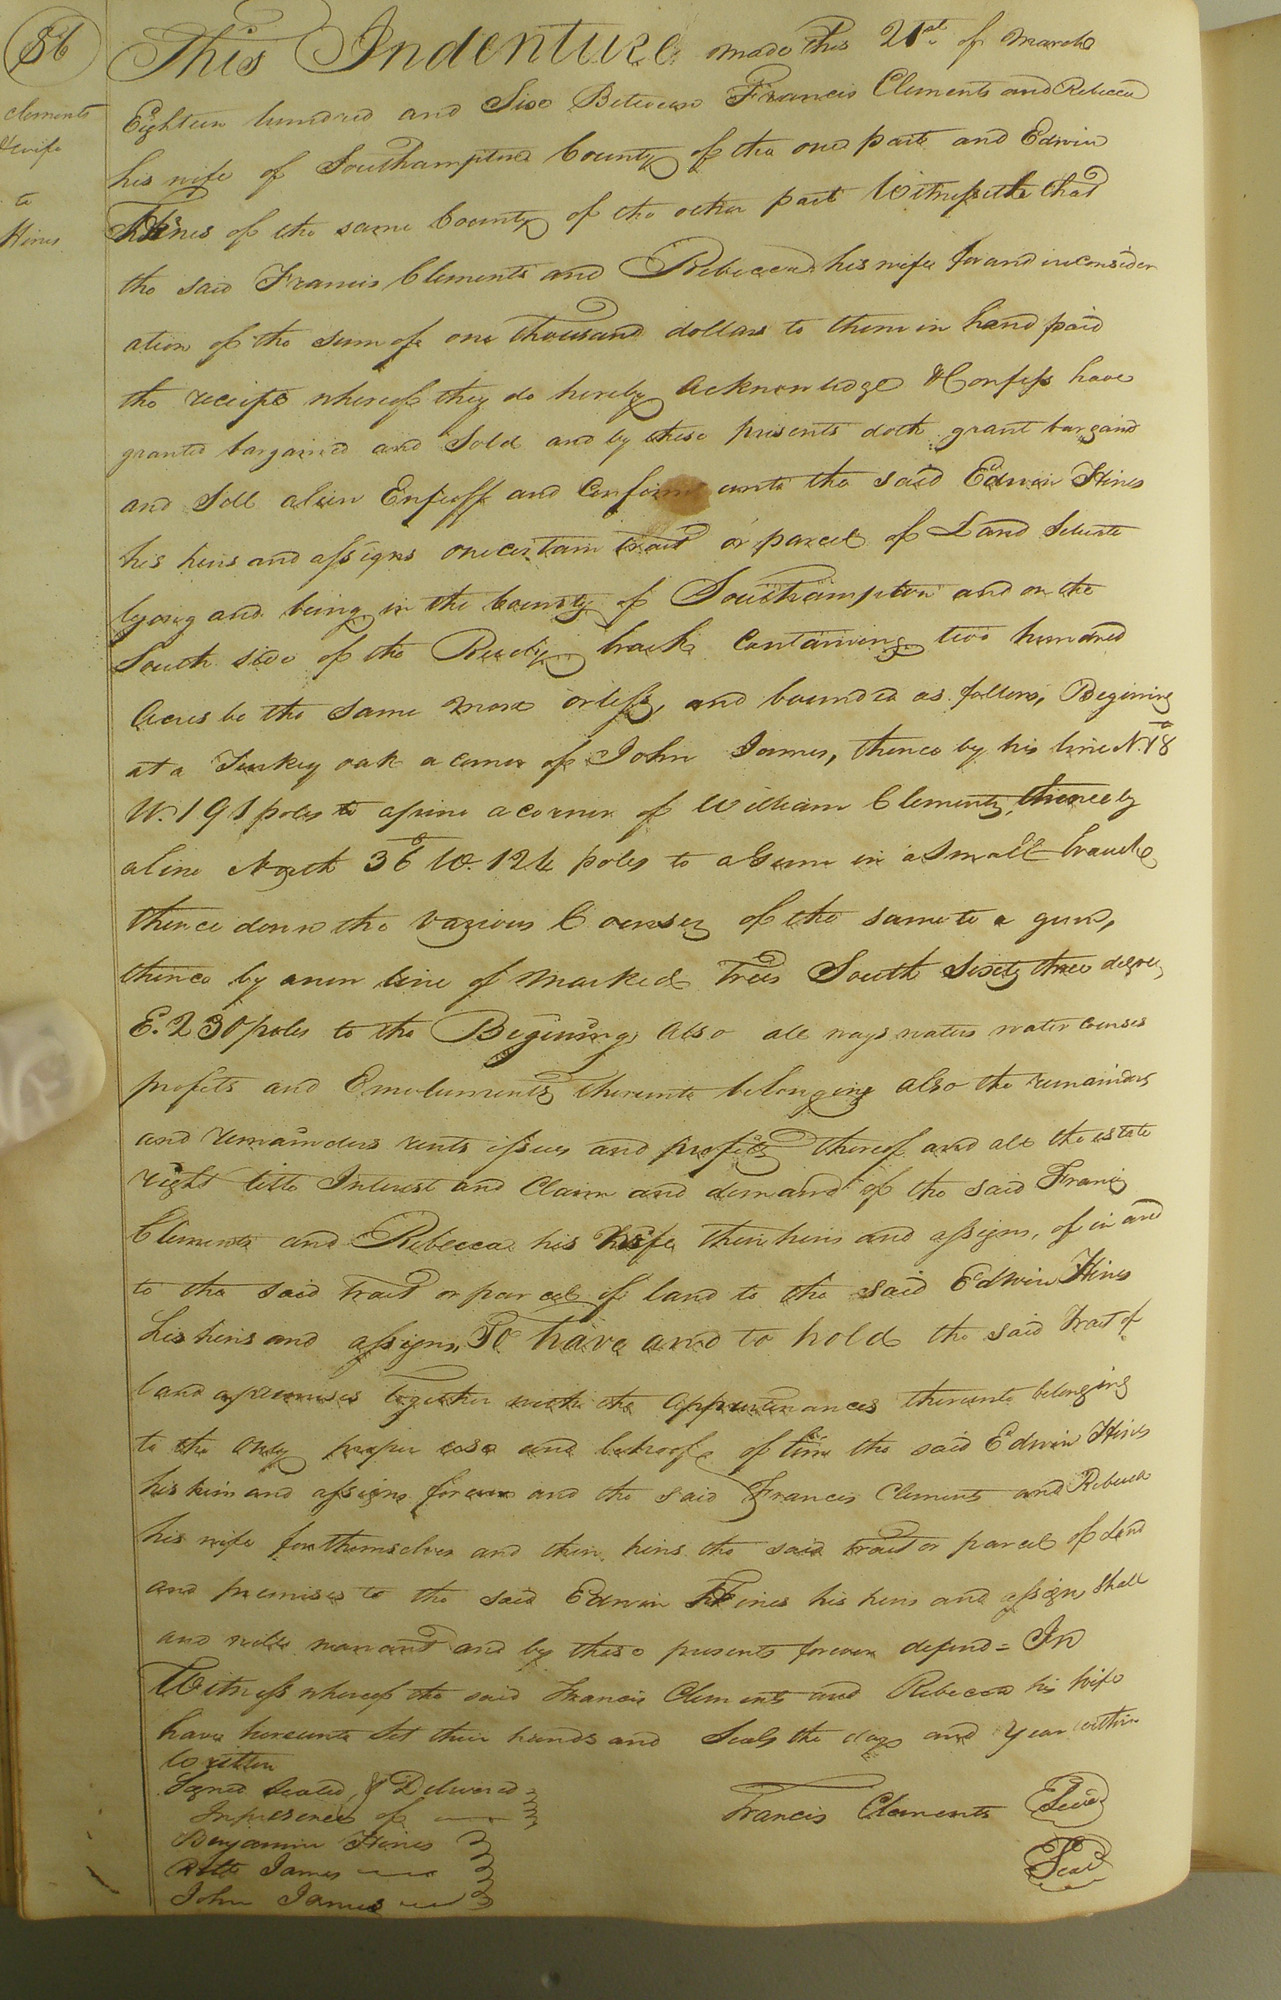 56
Clements
& wife
to
Hines
This Indenture made this 21st of March
Eighteen hundred and Six Between Francis Clements and Rebecca
his wife of Southampton County of the one part and Edwin
Hines of the same County of the other part Witnesseth that
the said Francis Clements and Rebecca his wife for and in consider
ation of the sum of one thousand dollars to them in hand paid
the receipt whereof they do hereby acknowledge & Confess have
granted bargained and Sold and by these presents doth grant bargain
and Sell alien Enfeoff and Confirm unto the said Edwin Hines
his heirs and assigns one certain tract or parcel of Land Setuate
lying and being in the County of Southampton and on the
South side of the Reedy branch Containing two hundred
Acres be the same more or less, and bounded as follows, Begining
at a Turkey oak a corner of John James, thence by his line N. 18
W. 191 poles to a pine a corner of William Clements, thence by
a line North 36 W. 124 poles to a Gum in a Small branch
thence down the various Courses of the same to a gum,
thence by a new line of marked Trees South Sixty three degrees
E. 230 poles to the Begining also all ways waters water courses
profits and Emoluments thereunto belonging also the remainder
and remainders rents issues and profits thereof and all the estate
right title Interest and Claim and demand of the said Francis
Clements and Rebecca his wife their heirs and assigns, of in and
to the said tract or parcel of land to the said Edwin Hines
his heirs and assigns, To have and to hold the said tract of
land & premises together with the appurtenances thereunto belonging
to the only proper use and behoof of him the said Edwin Hines
his heirs and assigns forever and the said Francis Clements and Rebecca
his wife for themselves and their heirs the said tract or parcel of Land
and premises to the said Edwin Hines his heirs and assigns, Shall
and will warrant and by these presents forever defend = In
Witness whereof the said Francis Clements and Rebecca his wife
have hereunto Set their hands and Seals the day and year within
written
Signed Sealed, & Delivered
In presence of
Benjamin Hines
James
John James
Francis Clements Seal
Seal